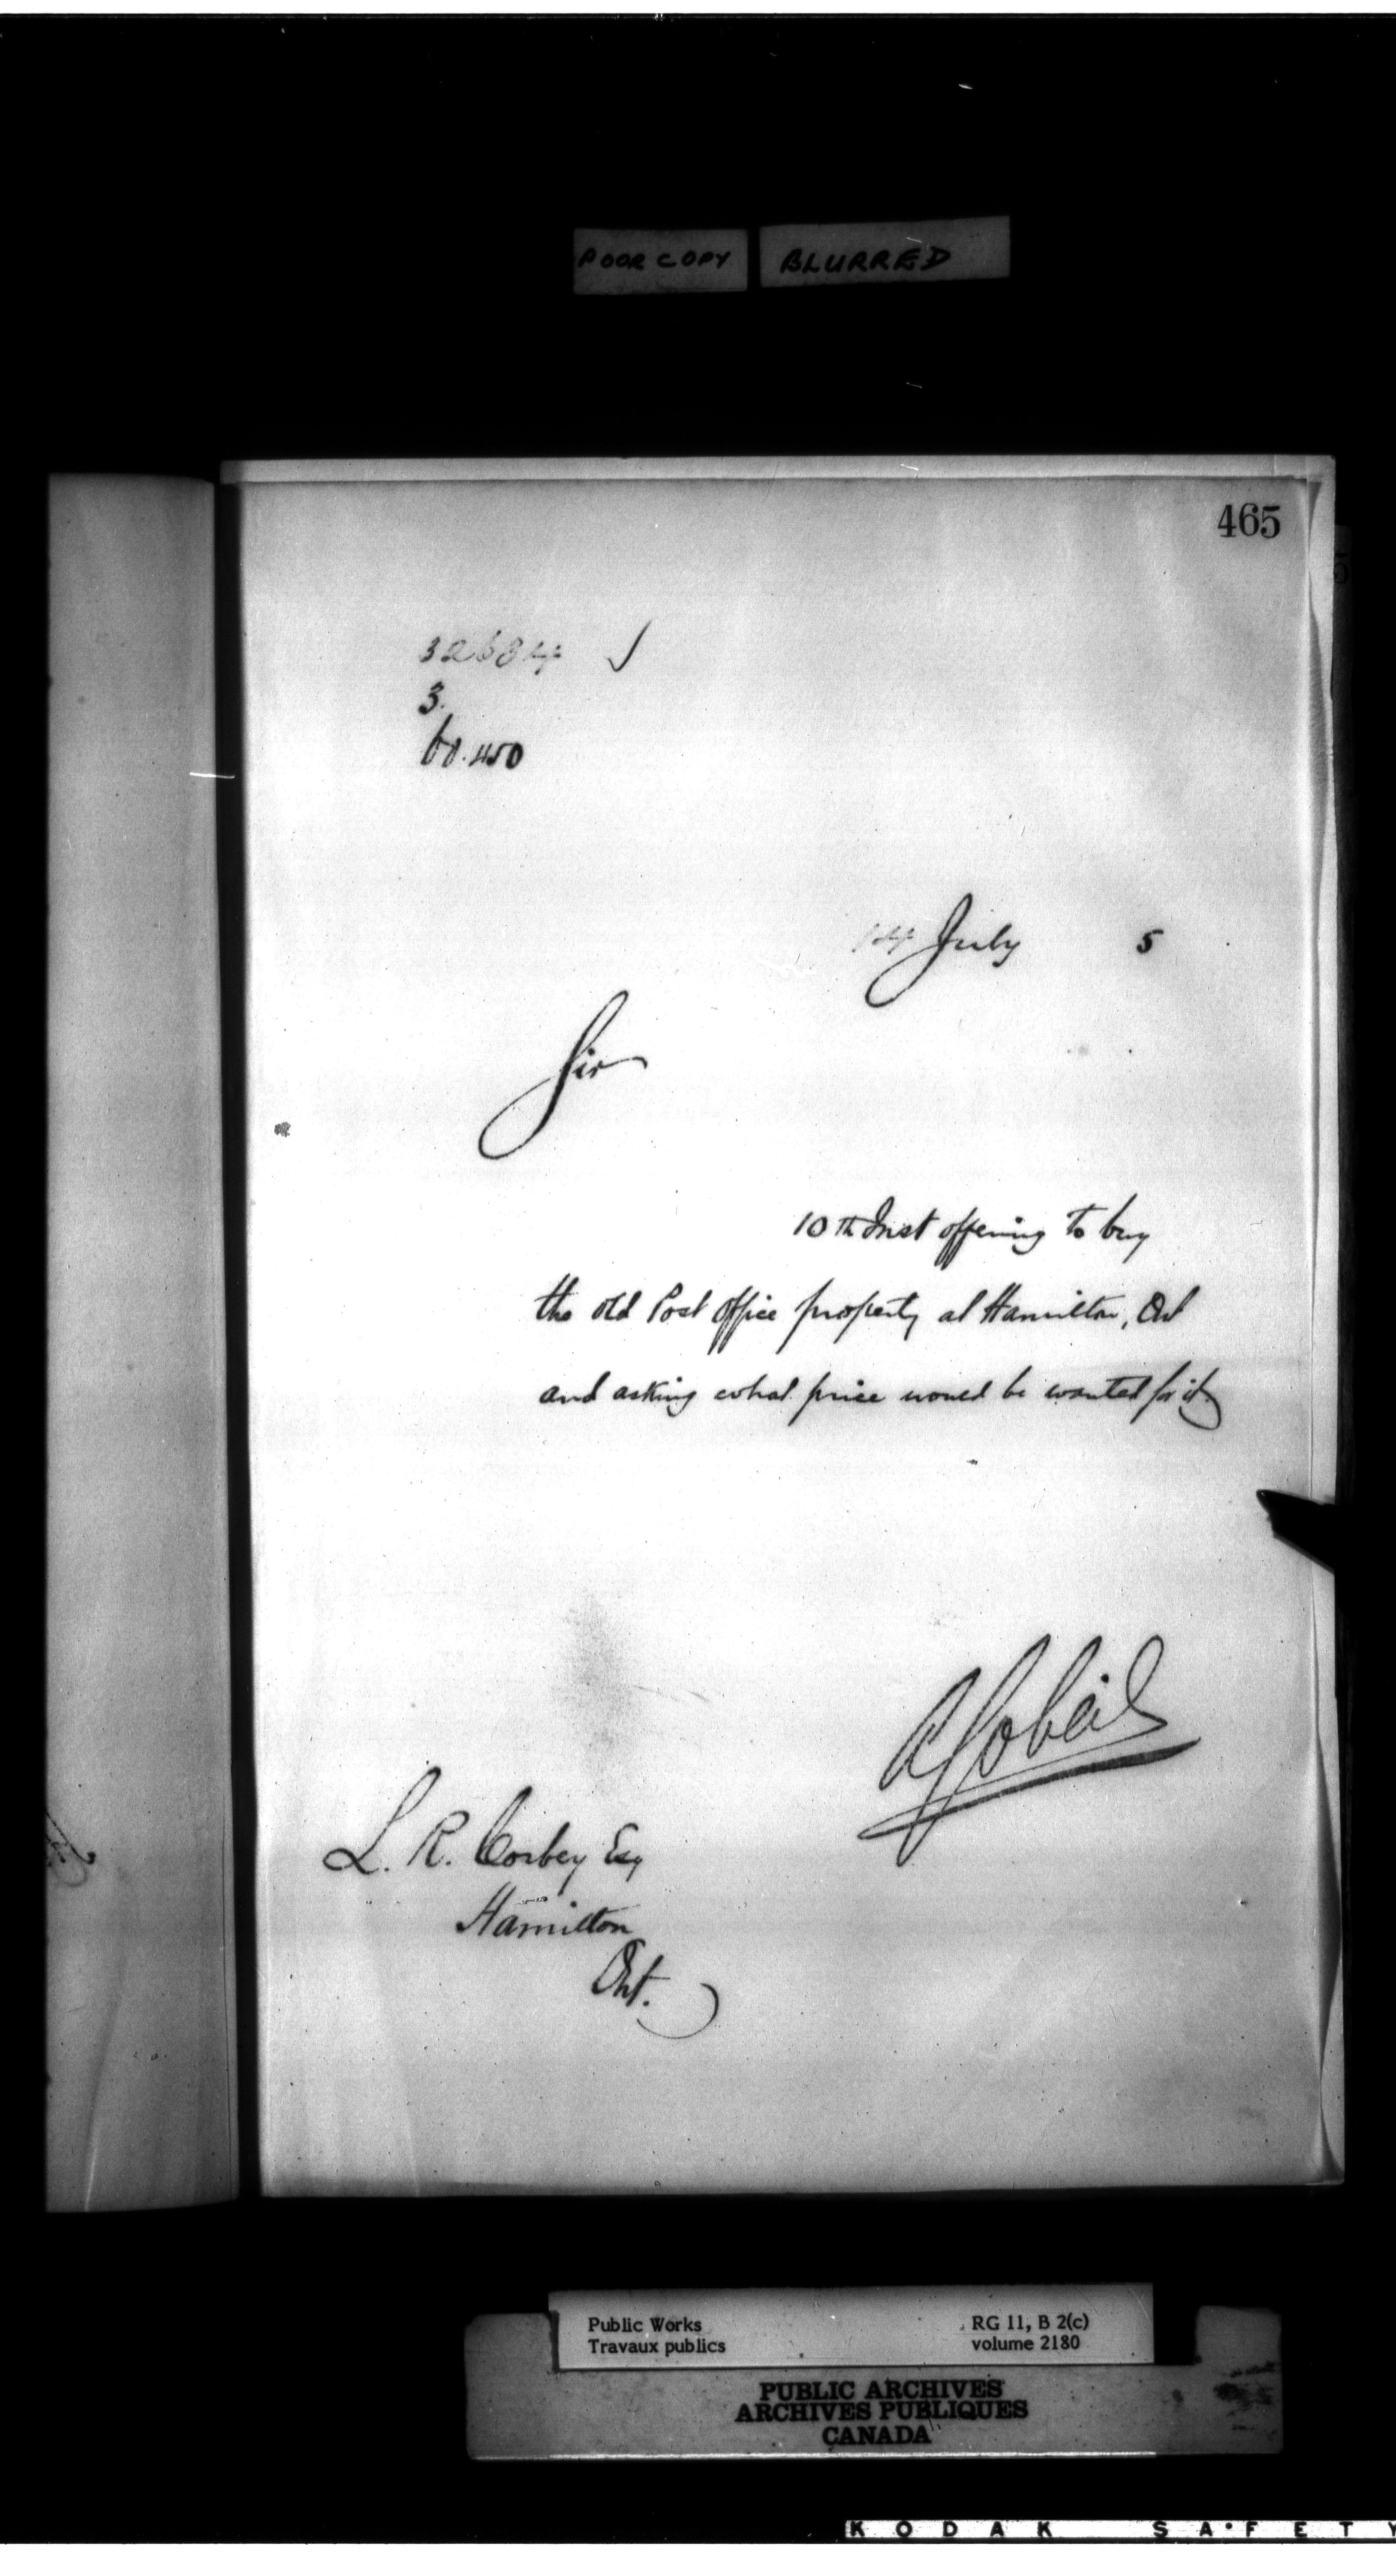 POOR COPY BLURRED
465
32684
3.
60.450
14 July 5
Sir
10th Inst offering to buy
the old Post Office property at Hamilton, Ont
and asking what price would be wanted for it.
AGobeil
L. R. Corbey Esq
Hamilton
Ont.
Public Works RG 11, B 2(c)
Travaux publics volume 2180
PUBLIC ARCHIVES
ARCHIVES PUBLIQUES
CANADA
KODAK SAFETY